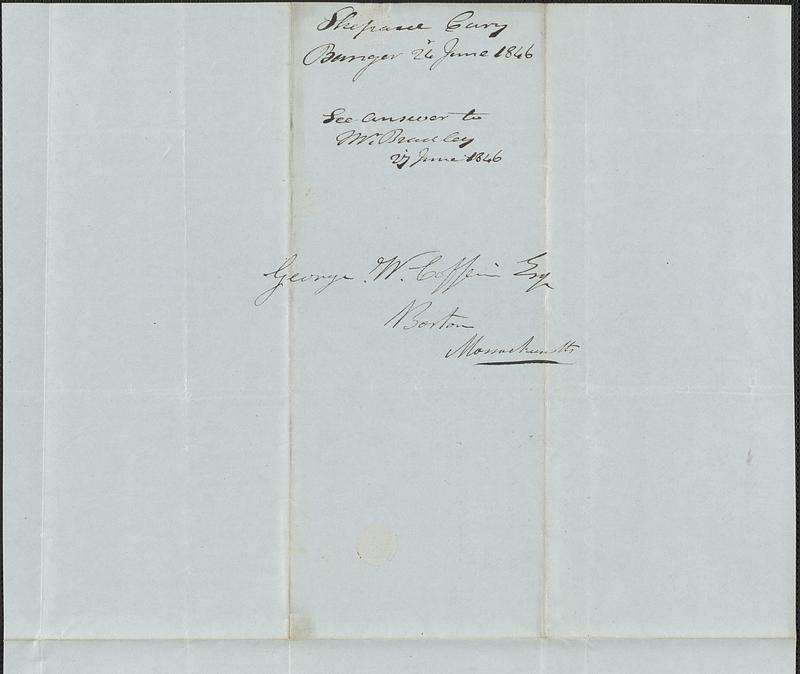 Shepard Cary
Bangor 24 June 1846
See answer to
Mr. Bradley
27 June 1846
George W. Coffin Esq
Boston
Massachusetts